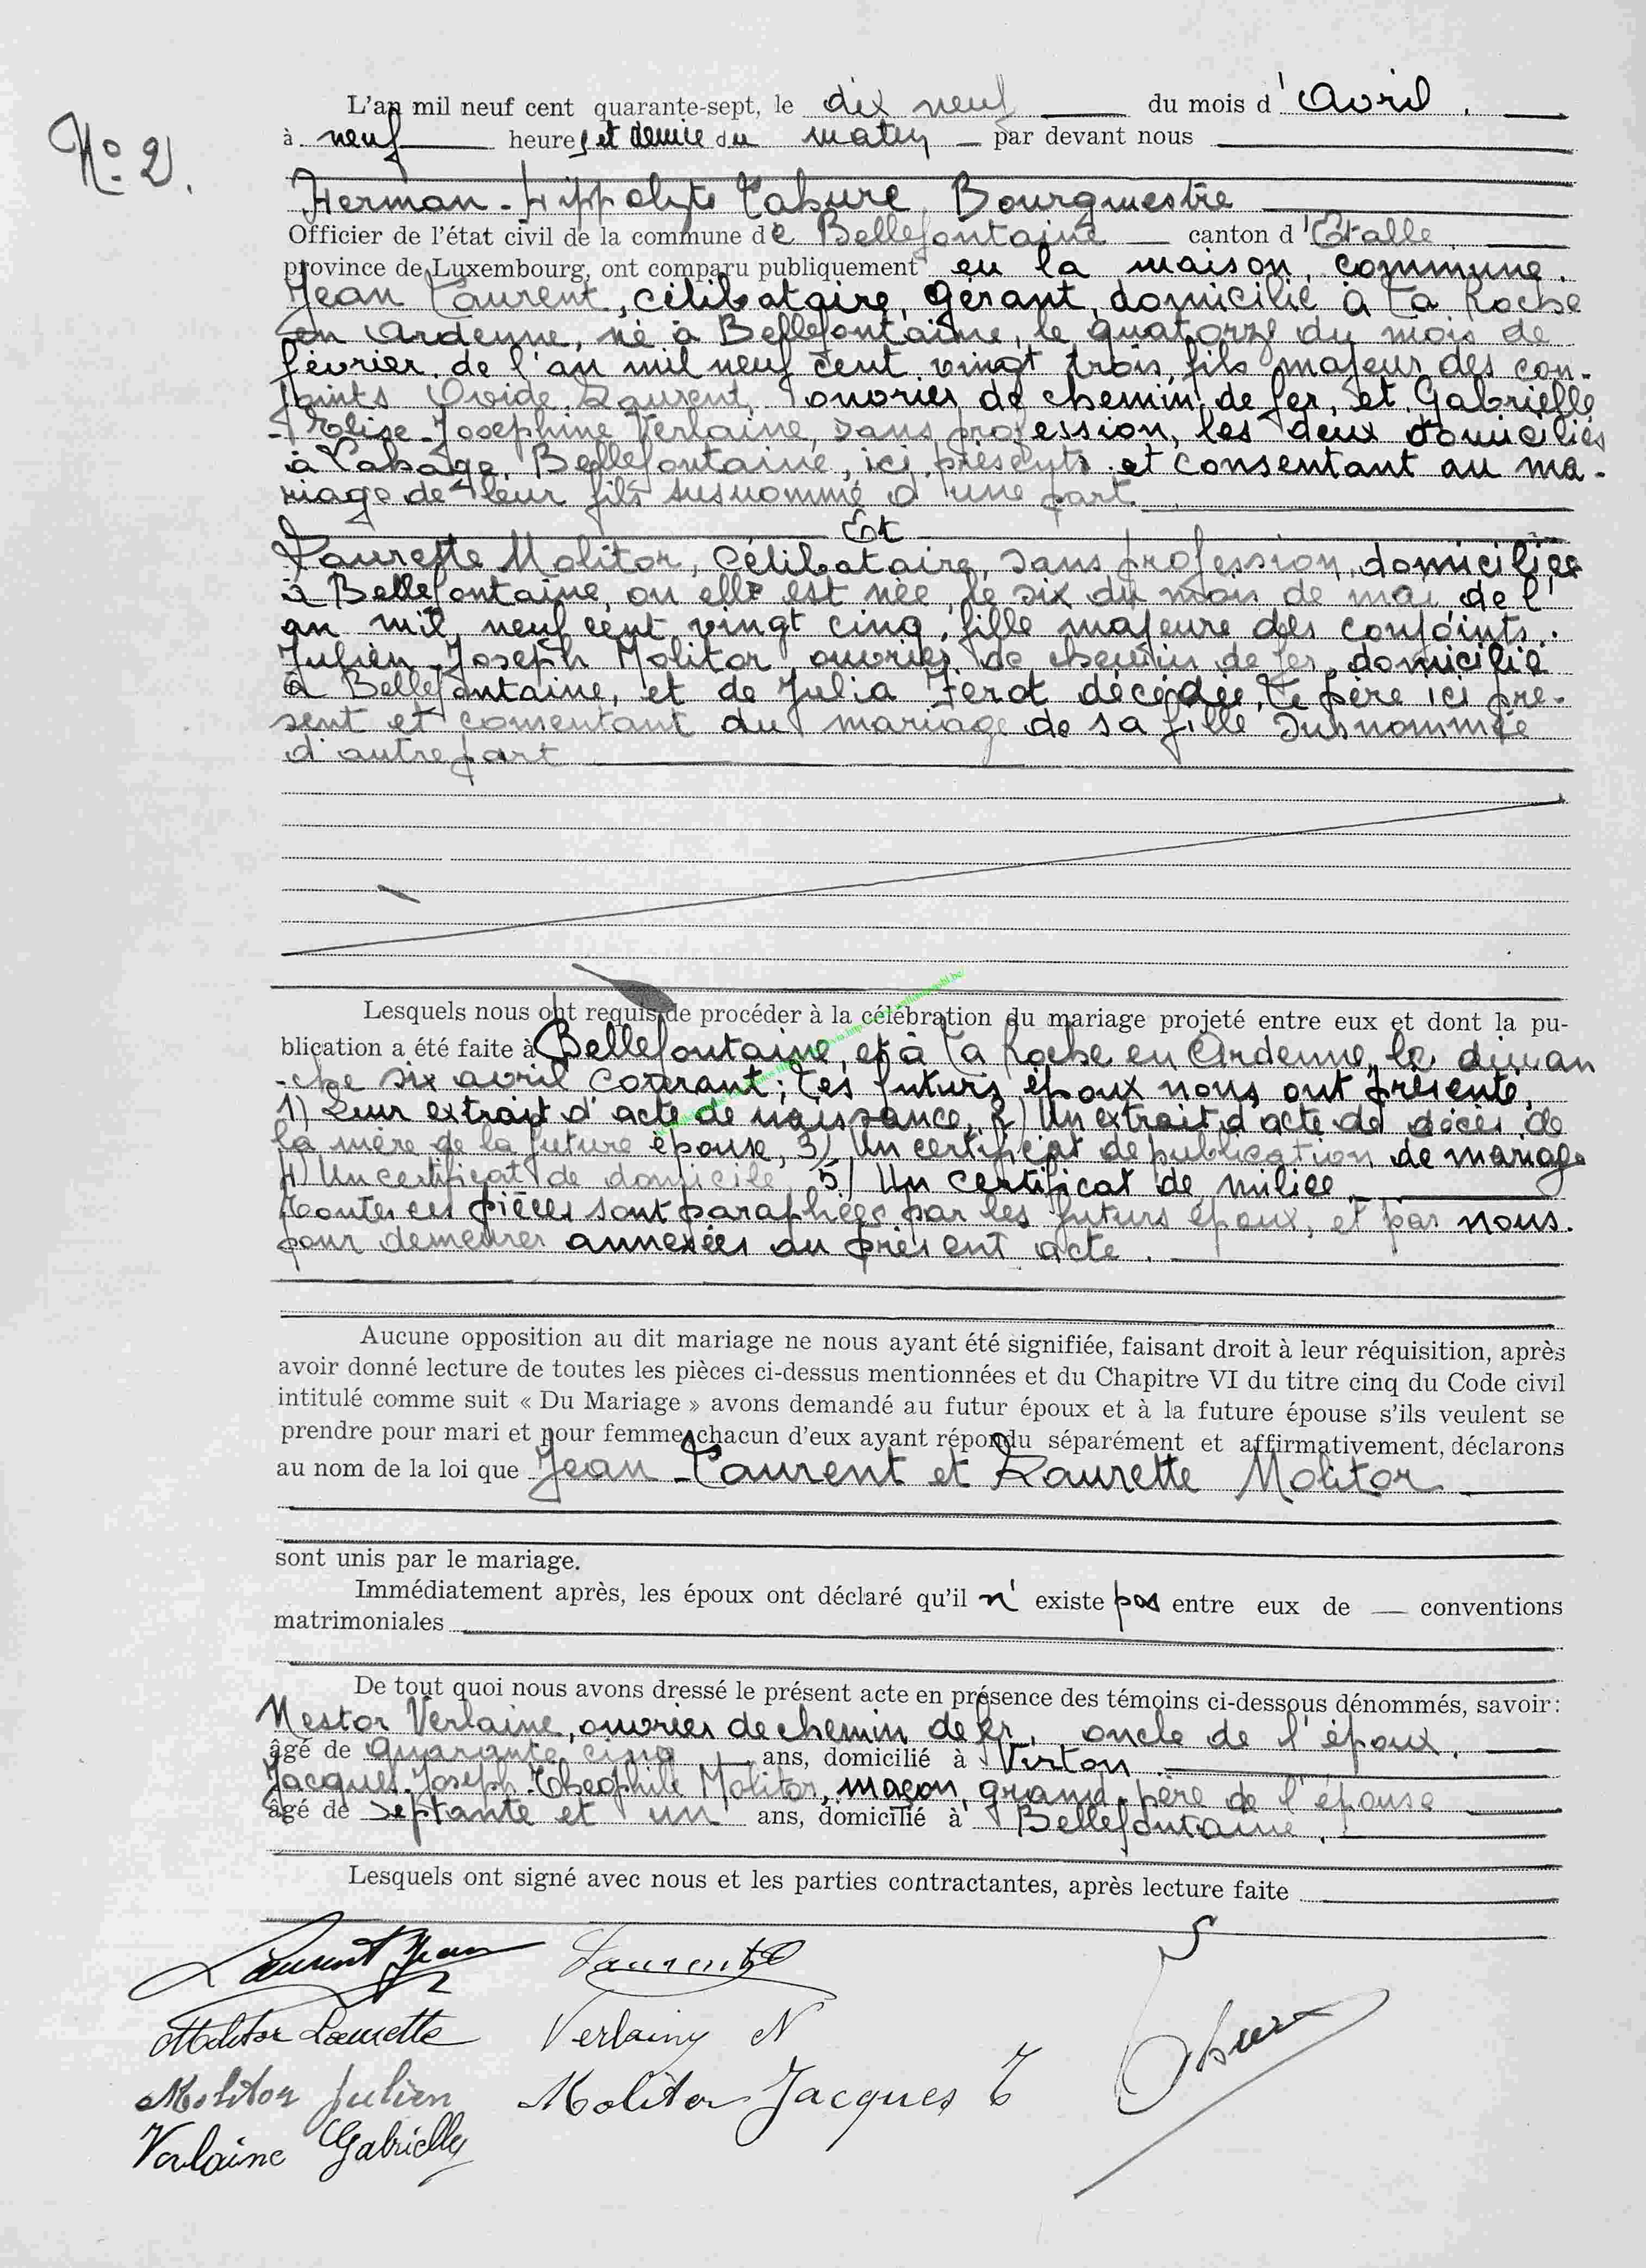 N° 2.
L'an mil neuf cent quarante-sept, le dix neuf du mois d'Avril.
à neuf heures et demie du matin par devant nous
Herman-Hippolyte Bourgmestre
Officier de l'état civil de la commune de Bellefontaine canton d'Etalle
province de Luxembourg, ont comparu publiquement en la maison commune.
Jean Laurent, célibataire, gérant, domicilié à La Roche
en Ardenne, né à Bellefontaine, le quatorze du mois de
février de l'an mil neuf cent vingt trois, fils majeur des con-
joints Ovide Laurent, ouvrier de chemin de fer, et Gabrielle
-Elise-Joséphine Verlaine, sans profession, les deux domiciliés
à Lahage, Bellefontaine, ici présents et consentant au ma-
riage de leur fils susnommé d'une part
Et
Laurette Molitor, célibataire, sans profession, domiciliée
à Bellefontaine, ou elle est née, le six du mois de mai de l'
an mil neuf cent vingt cinq, fille majeure des conjoints.
Julien-Joseph Molitor, ouvrier de chemin de fer, domicilié
à Bellefontaine, et de Julia décédée, Le père ici pré-
sent et consentant du mariage de sa fille susnommée
d'autre part
Lesquels nous ont requis de procéder à la célébration du mariage projeté entre eux et dont la pu-
blication a été faite à Bellefontaine, et à La Roche en Ardenne, le diman
-che six avril courant; Les futurs époux nous ont présenté,
1) Leur extrait d'acte de naissance, 2) Un extrait d'acte de décès de
la mère de la future épouse, 3) Un certificat de publication de mariage
4) Un certificat de domicile 5) Un certificat de milice
Toutes ces pièces sont paraphées par les futurs époux, et par nous.
pour demeurer annexées au présent acte.
Aucune opposition au dit mariage ne nous ayant été signifiée, faisant droit à leur réquisition, après
avoir donné lecture de toutes les pièces ci-dessus mentionnées et du Chapitre VI du titre cinq du Code civil
intitulé comme suit « Du Mariage » avons demandé au futur époux et à la future épouse s'ils veulent se
prendre pour mari et pour femme, chacun d'eux ayant répondu séparément et affirmativement, déclarons
au nom de la loi que Jean Laurent et Laurette Molitor
sont unis par le mariage.
Immédiatement après, les époux ont déclaré qu'il n'existe pas entre eux de — conventions
matrimoniales
De tout quoi nous avons dressé le présent acte en présence des témoins ci-dessous dénommés, savoir :
Nestor Verlaine, ouvrier de chemin de fer, oncle de l'époux.
âgé de quarante cinq ans, domicilié à Virton
Jacques-Joseph-Théophile Molitor, maçon, grand-père de l'épouse
âgé de septante et un ans, domicilié à Bellefontaine.
Lesquels ont signé avec nous et les parties contractantes, après lecture faite
Laurent Jean Laurent O
Molitor Laurette Verlaine N
Molitor Julien Molitor Jacques T
Verlaine Gabrielle